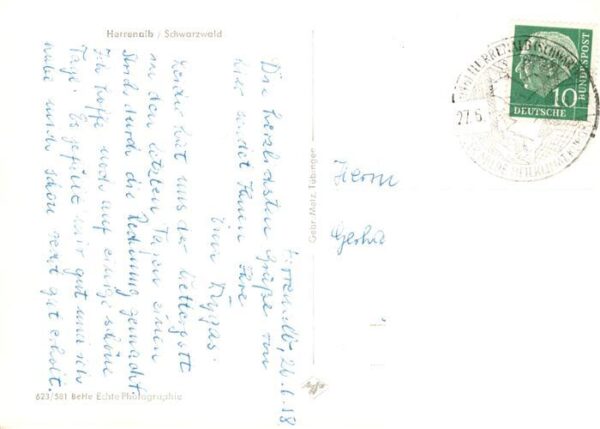 Herrenalb / Schwarzwald
Herrenalb, 26.
Die herzlichsten Grüße von
hier sendet Ihnen Ihre
Leider hat uns der Wettergott
in den letzten Tagen einen
Strich durch die Rechnung gemacht.
Ich hoffe noch auf einige schöne
Tage! Es gefällt mir gut und ich
habe mich schon recht gut erholt.
623/581 BeHe Echte Photographie
Gebr. Metz, Tübingen
Agfa
Herrn
Gerha
HERRENALB (SCHWARZW
27.6
10
DEUTSCHE
BUNDESPOST